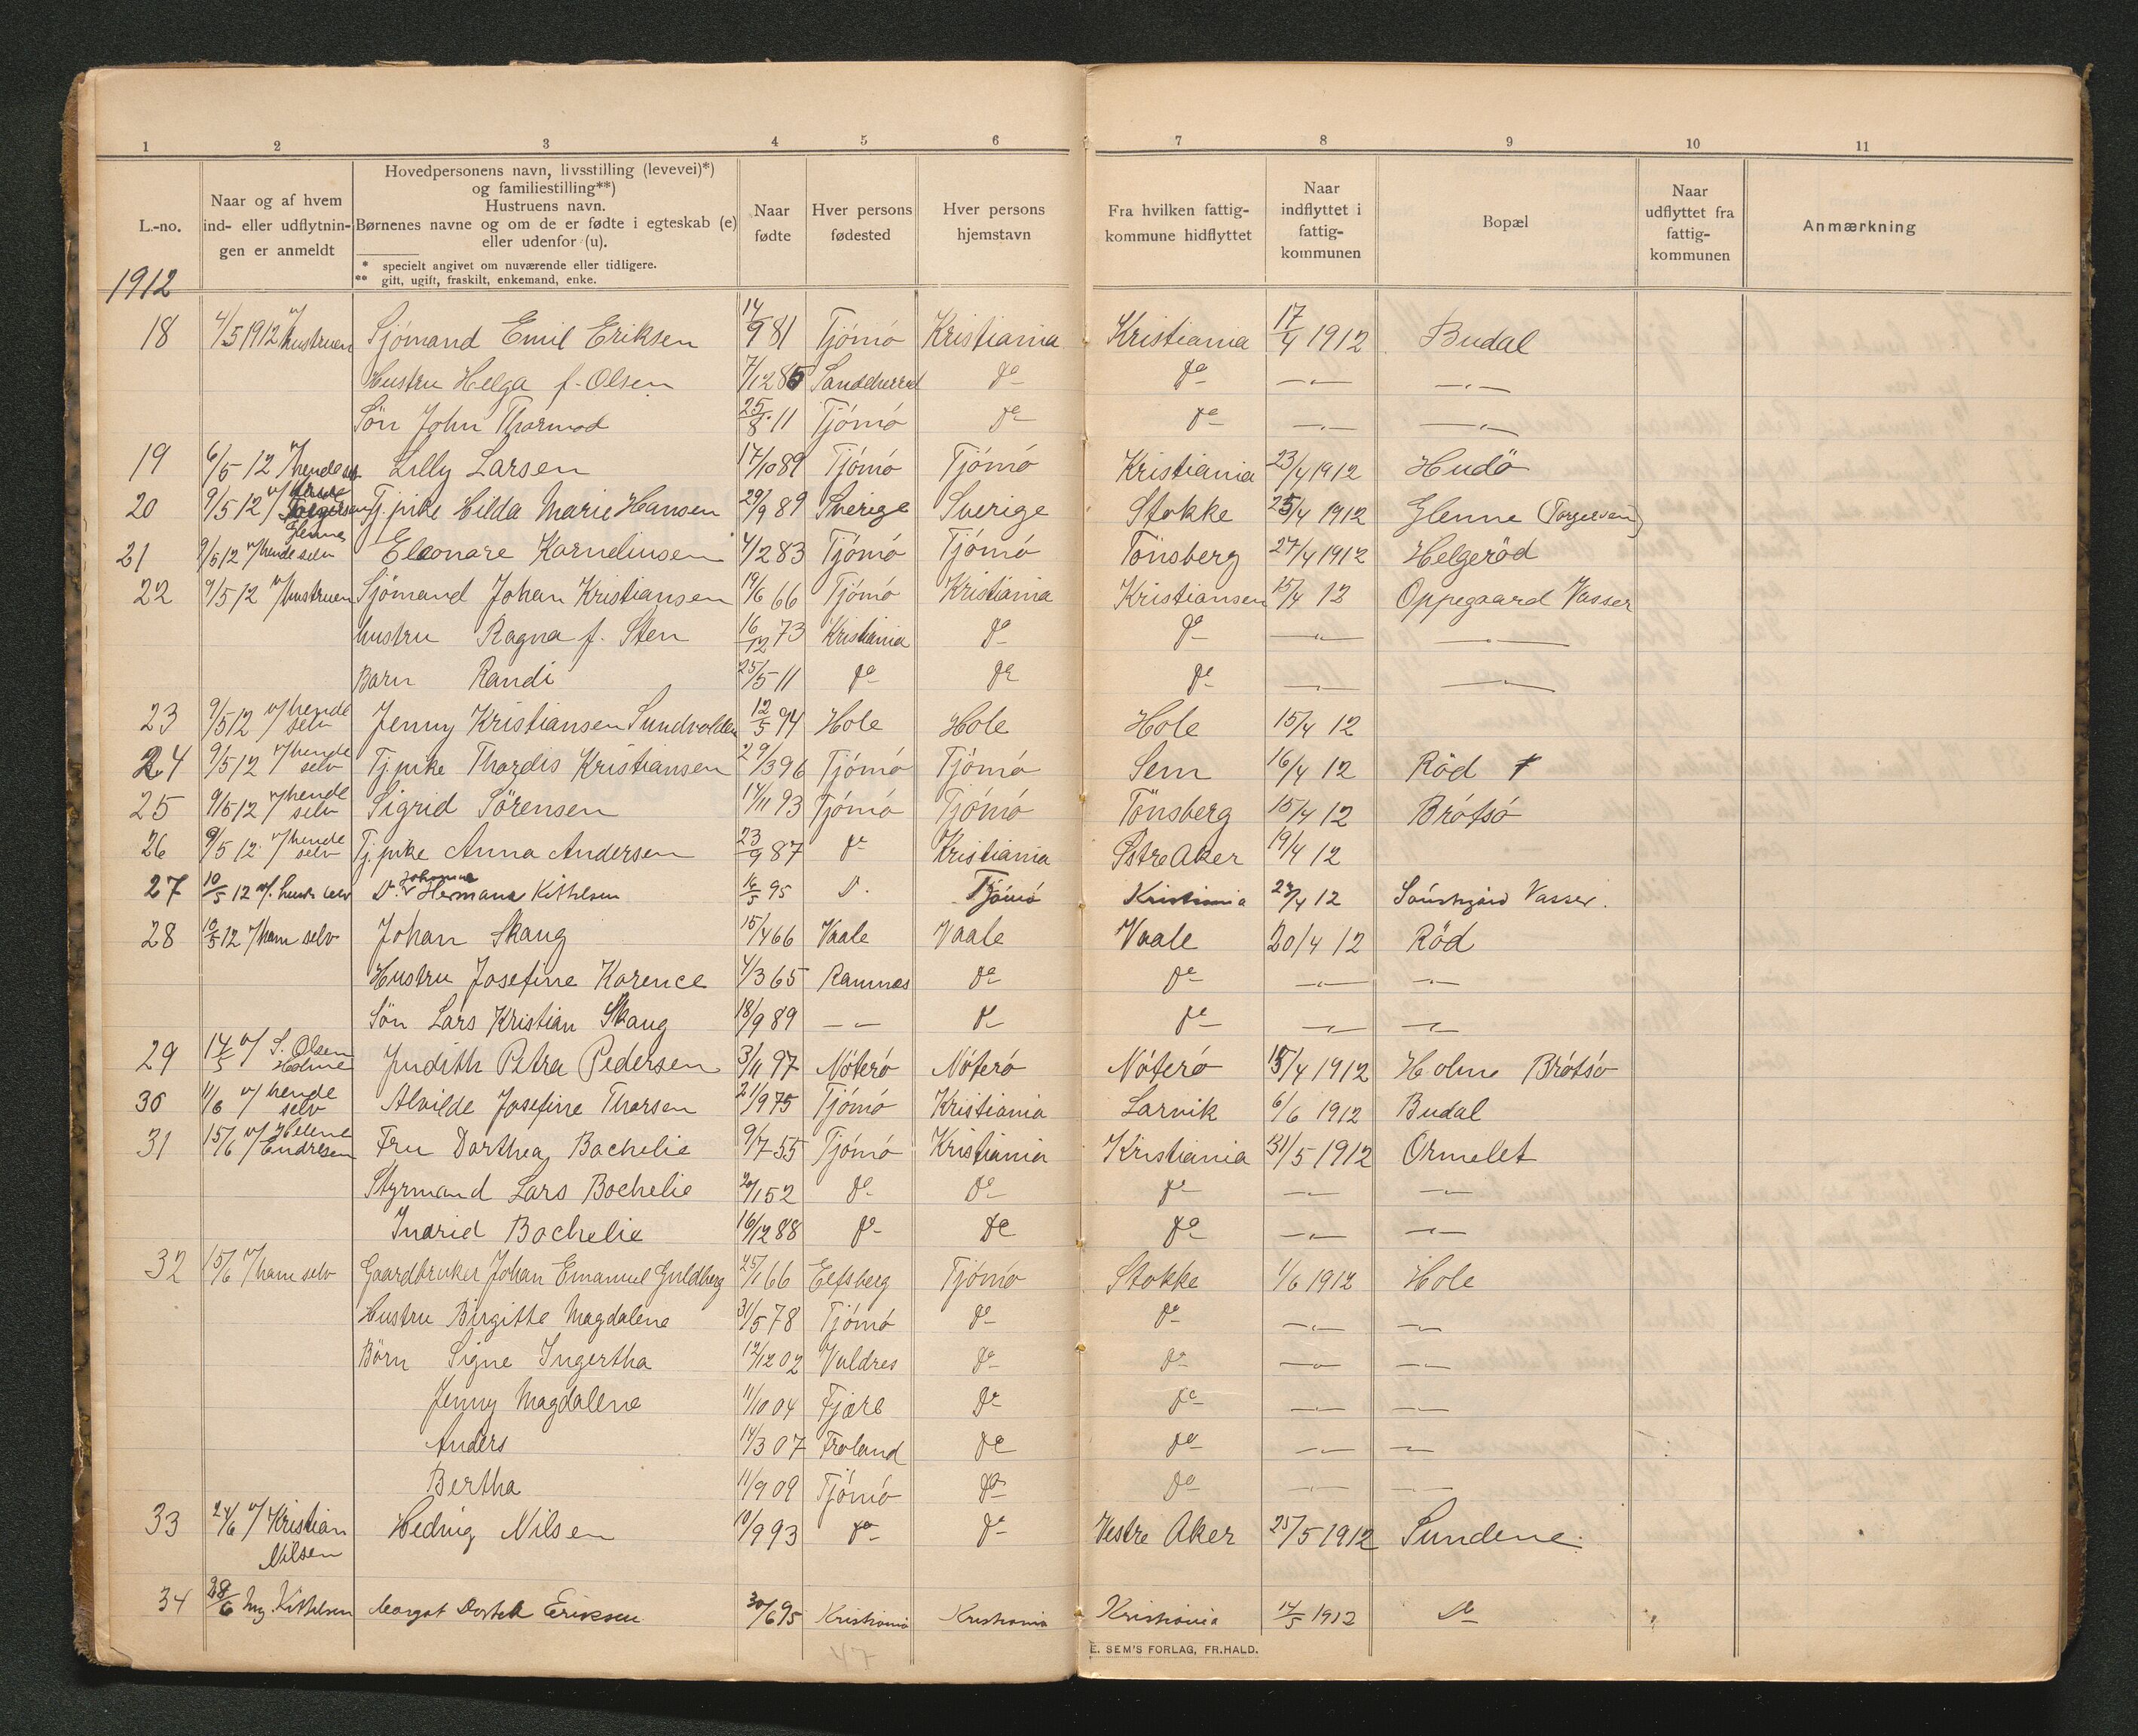 1 2 3 4 5 6 7 8 9 10 11
L.-no.
Naar og af hvem ind- eller udflytnin- gen er anmeldt
Hovedpersonens navn, livsstilling (levevei)*)
og familiestilling**)
Hustruens navn.
Børnenes navne og om de er fødte i egteskab (e)
eller udenfor (u).
* specielt angivet om nuværende eller tidligere.
** gift, ugift, fraskilt, enkemand, enke.
Naar fødte
Hver persons fødested
Hver persons hjemstavn
Fra hvilken fattig- kommune hidflyttet
Naar indflyttet i fattig- kommunen
Bopæl
Naar udflyttet fra fattig- kommunen
Anmærkning
1912
18 4/5 1912 v/ hustruen Sjómand Emil Eriksen 14/9 81 Tjómó Kristiania Kristiania 17/4 1912 Budal
Hustru Helga f. Olsen 7/12 85 do do
Sön John Thormod 25/8 11 Tjómó do do
19 6/5 12 v/ hende selv Lilly Larsen 17/10 89 Tjómó Tjómó Kristiania 23/4 1912 Hudö
20 9/5 12 v/ Glenne Tj. pike Hilda Marie Hansen 29/9 89 Sverige Sverige Stokke 25/4 1912 Glenne
21 9/5 12 v/ hende selv Eleonare Karneliusen 4/2 83 Tjómó Tjómó Tönsberg 27/4 1912 Helgeröd
22 9/5 12 v/ hustruen Sjömand Johan Kristiansen 19/6 66 Tjómó Kristiania Kristiansen 15/4 12 Oppegaard Vasser
hustru Ragna f. Sten 16/12 73 Kristiania do do
Barn Randi 25/5 11 do do do
23 9/5 12 v/ hende selv Jenny Kristiansen Sundvolden 12/5 94 Hole Hole Hole 15/4 12
24 9/5 12 v/ hende selv Tj. pike Thordis Kristiansen 29/3 96 Tjómó Tjómó Sem 16/4 12 Röd
25 9/5 12 v/ hende selv Sigrid Sörensen 14/11 93 Tjómó Tjómó Tönsberg 15/4 12 Brótsó
26 9/5 12 v/ hende selv Tj. pike Anna Andersen 23/9 87 do Kristiania Östre Aker 19/4 12
27 10/5 12 v/ hende selv Do Johanne Hermana Kittelsen 16/5 95 D. Tjómó Kristiania 24/4 12 Vasser.
28 10/5 12 v/ ham selv Johan Skaug 15/4 66 Vaale Vaale Vaale 20/4 12 Röd
Hustru Josefine Karence 4/3 65 Ramnes do do
Sön Lars Kristian Skaug 18/9 89 do do
29 14/5 v/ S. Olsen Holme Judith Petra Pedersen 3/11 97 Nóteró Nóteró Nóteró 15/4 1912 Holme Brótsó
30 11/6 v/ hende selv Alvilde Josefine Thorsen 21/9 75 Tjómó Kristiania Larvik 6/6 1912 Budal
31 15/6 v/ Helene Endresen Fru Dorthea Bachelie 9/7 55 Tjómó Kristiania Kristiania 31/5 1912 Ormelet
Styrmand Lars Bochelie 20/1 52 do do do
Indrid Bochelie 16/12 88 do do do
32 15/6 v/ ham selv Gaardbruker Johan Emanuel Guldberg 25/1 66 Eefsberg Tjómó Stokke 1/6 1912 Hole
Hustru Birgitte Magdalene 31/5 78 Tjómó do do
Börn Signe Ingertha 12/12 02 Valdres do do
Jenny Magdalene 11/10 04 Fjære do do
Anders 14/3 07 Froland do do
Bertha 11/9 09 Tjómó do do
33 24/6 v/ Kristian Nilsen Hedvig Nilsen 10/9 93 do do Vestre Aker 25/5 1912 Sundene
34 28/6 Kittelsen Margot Eriksen 30/6 95 Kristiania Kristiania Kristiania 14/5 1912 Do
47
E. SEM'S FORLAG, FR.HALD.